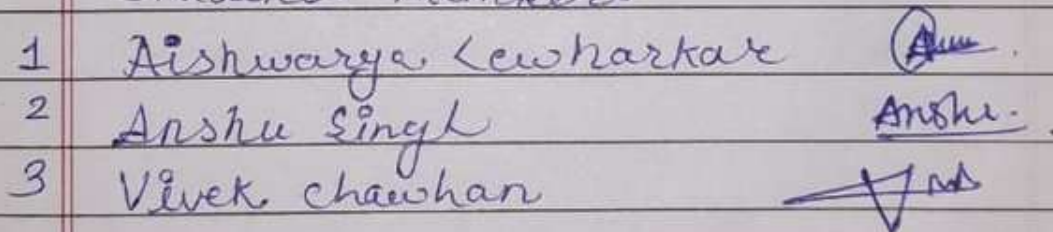 1 Aishwarya Lewharkar
2 Anshu Singh Anshu.
3 Vivek chawhan